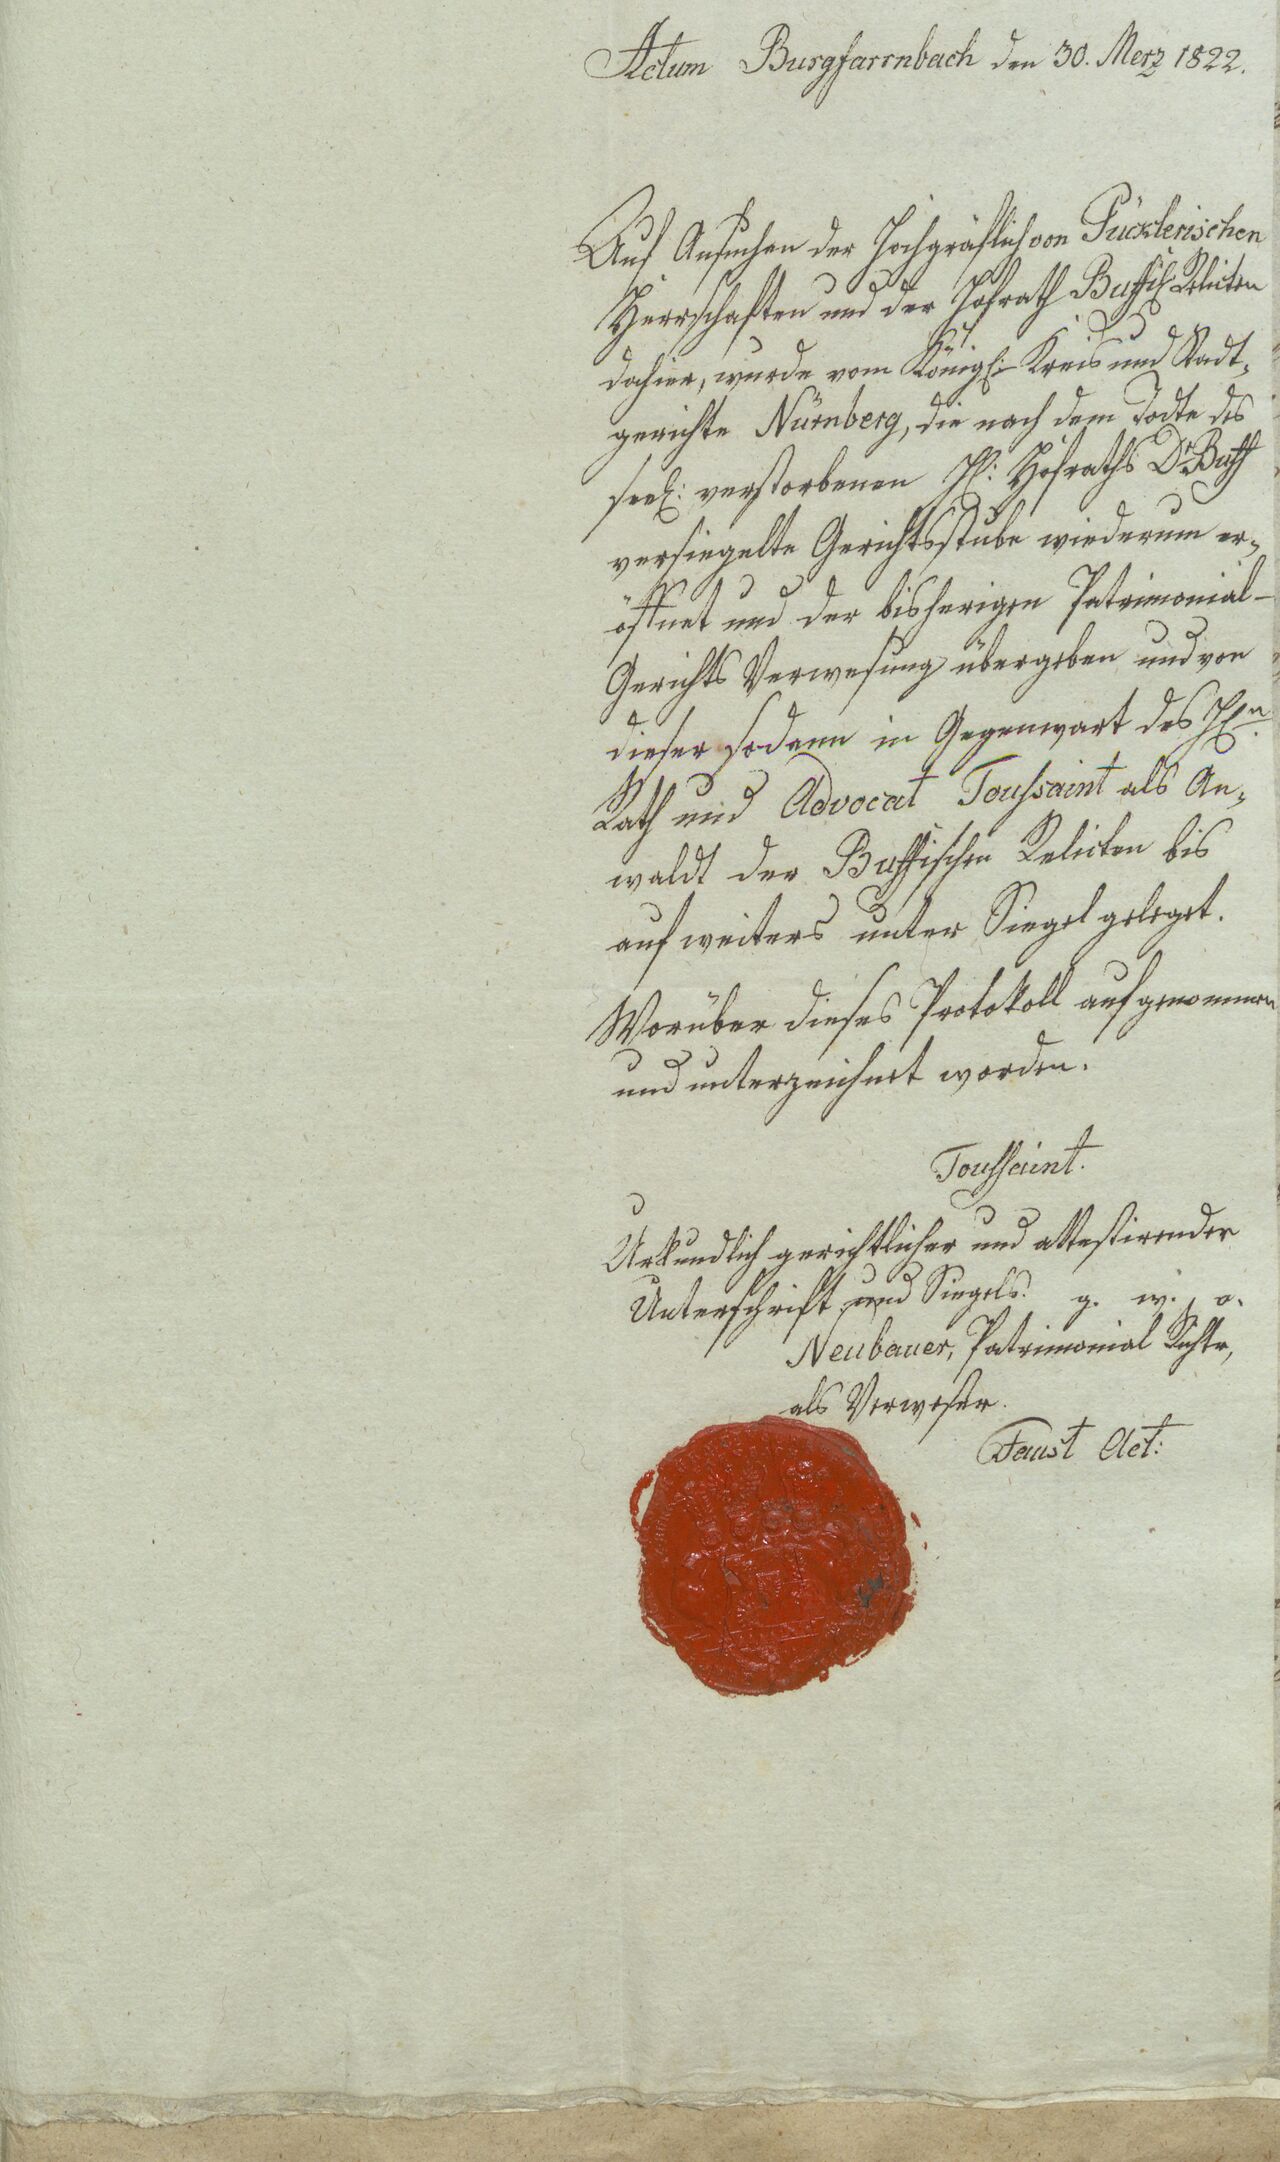 Actum Burgfarrnbach den 30. Merz 1822.
Auf Ansuchen der Hochgräflich von Pücklerischen
Herrschaften und der Hofrath Buffisch Relicten
dahier, wurde vom Königl: Kreis und Stadt-
gerichte Nürnberg, die nach dem Todte des
seel: verstorbenen H: Hofraths Dr. Buff
versiegelte Gerichtsstube wiederum er-
öffnet und der bisherigen Patrimonial-
Gerichts Verwesung übergeben und von
dieser sodann in Gegenwart des Hn.
Rath und Advocat Toussaint als An-
waldt der Buffischen Relicten bis
auf weiters unter Siegel geleget.
Worüber dieses Protokoll aufgenommen
und unterzeichnet worden.
Toussaint.
Urkundlich gerichtlicher und attestirender
Unterschrift und Siegels. g. w. o.
Neubauer, Patrimonial Richtr,
als Verweser.
Faust Act: